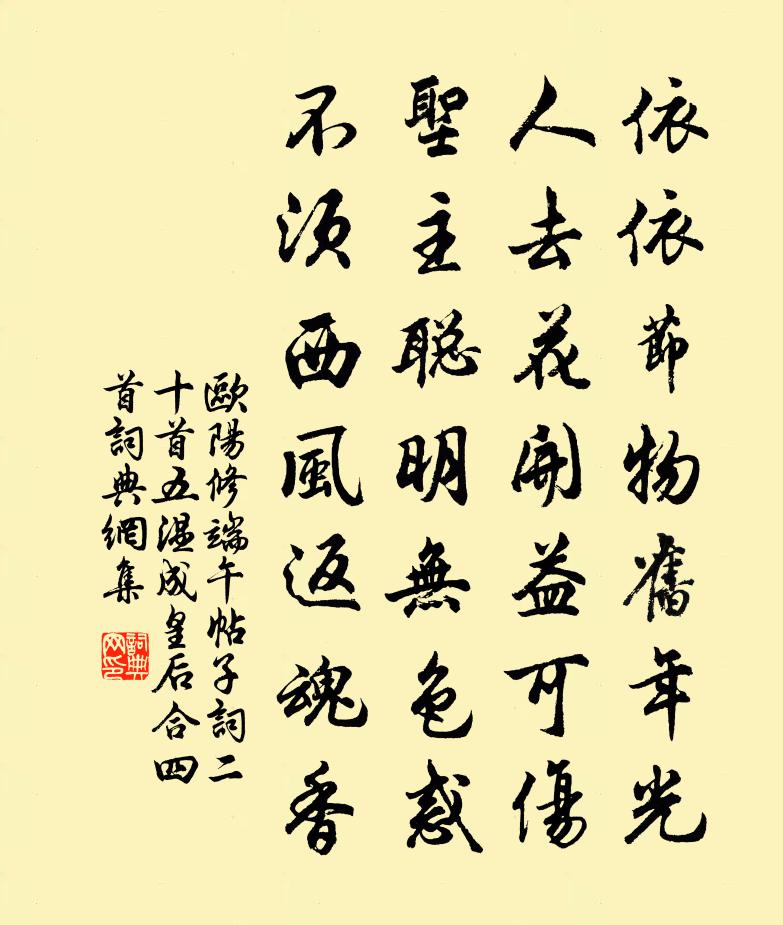 依依節物舊年光
人去花開益可傷
聖主聰明無色惑
不須西風返魂香
歐陽修端午帖子詞二
十首五溫成皇后合四
首詞典網集
詞典網印